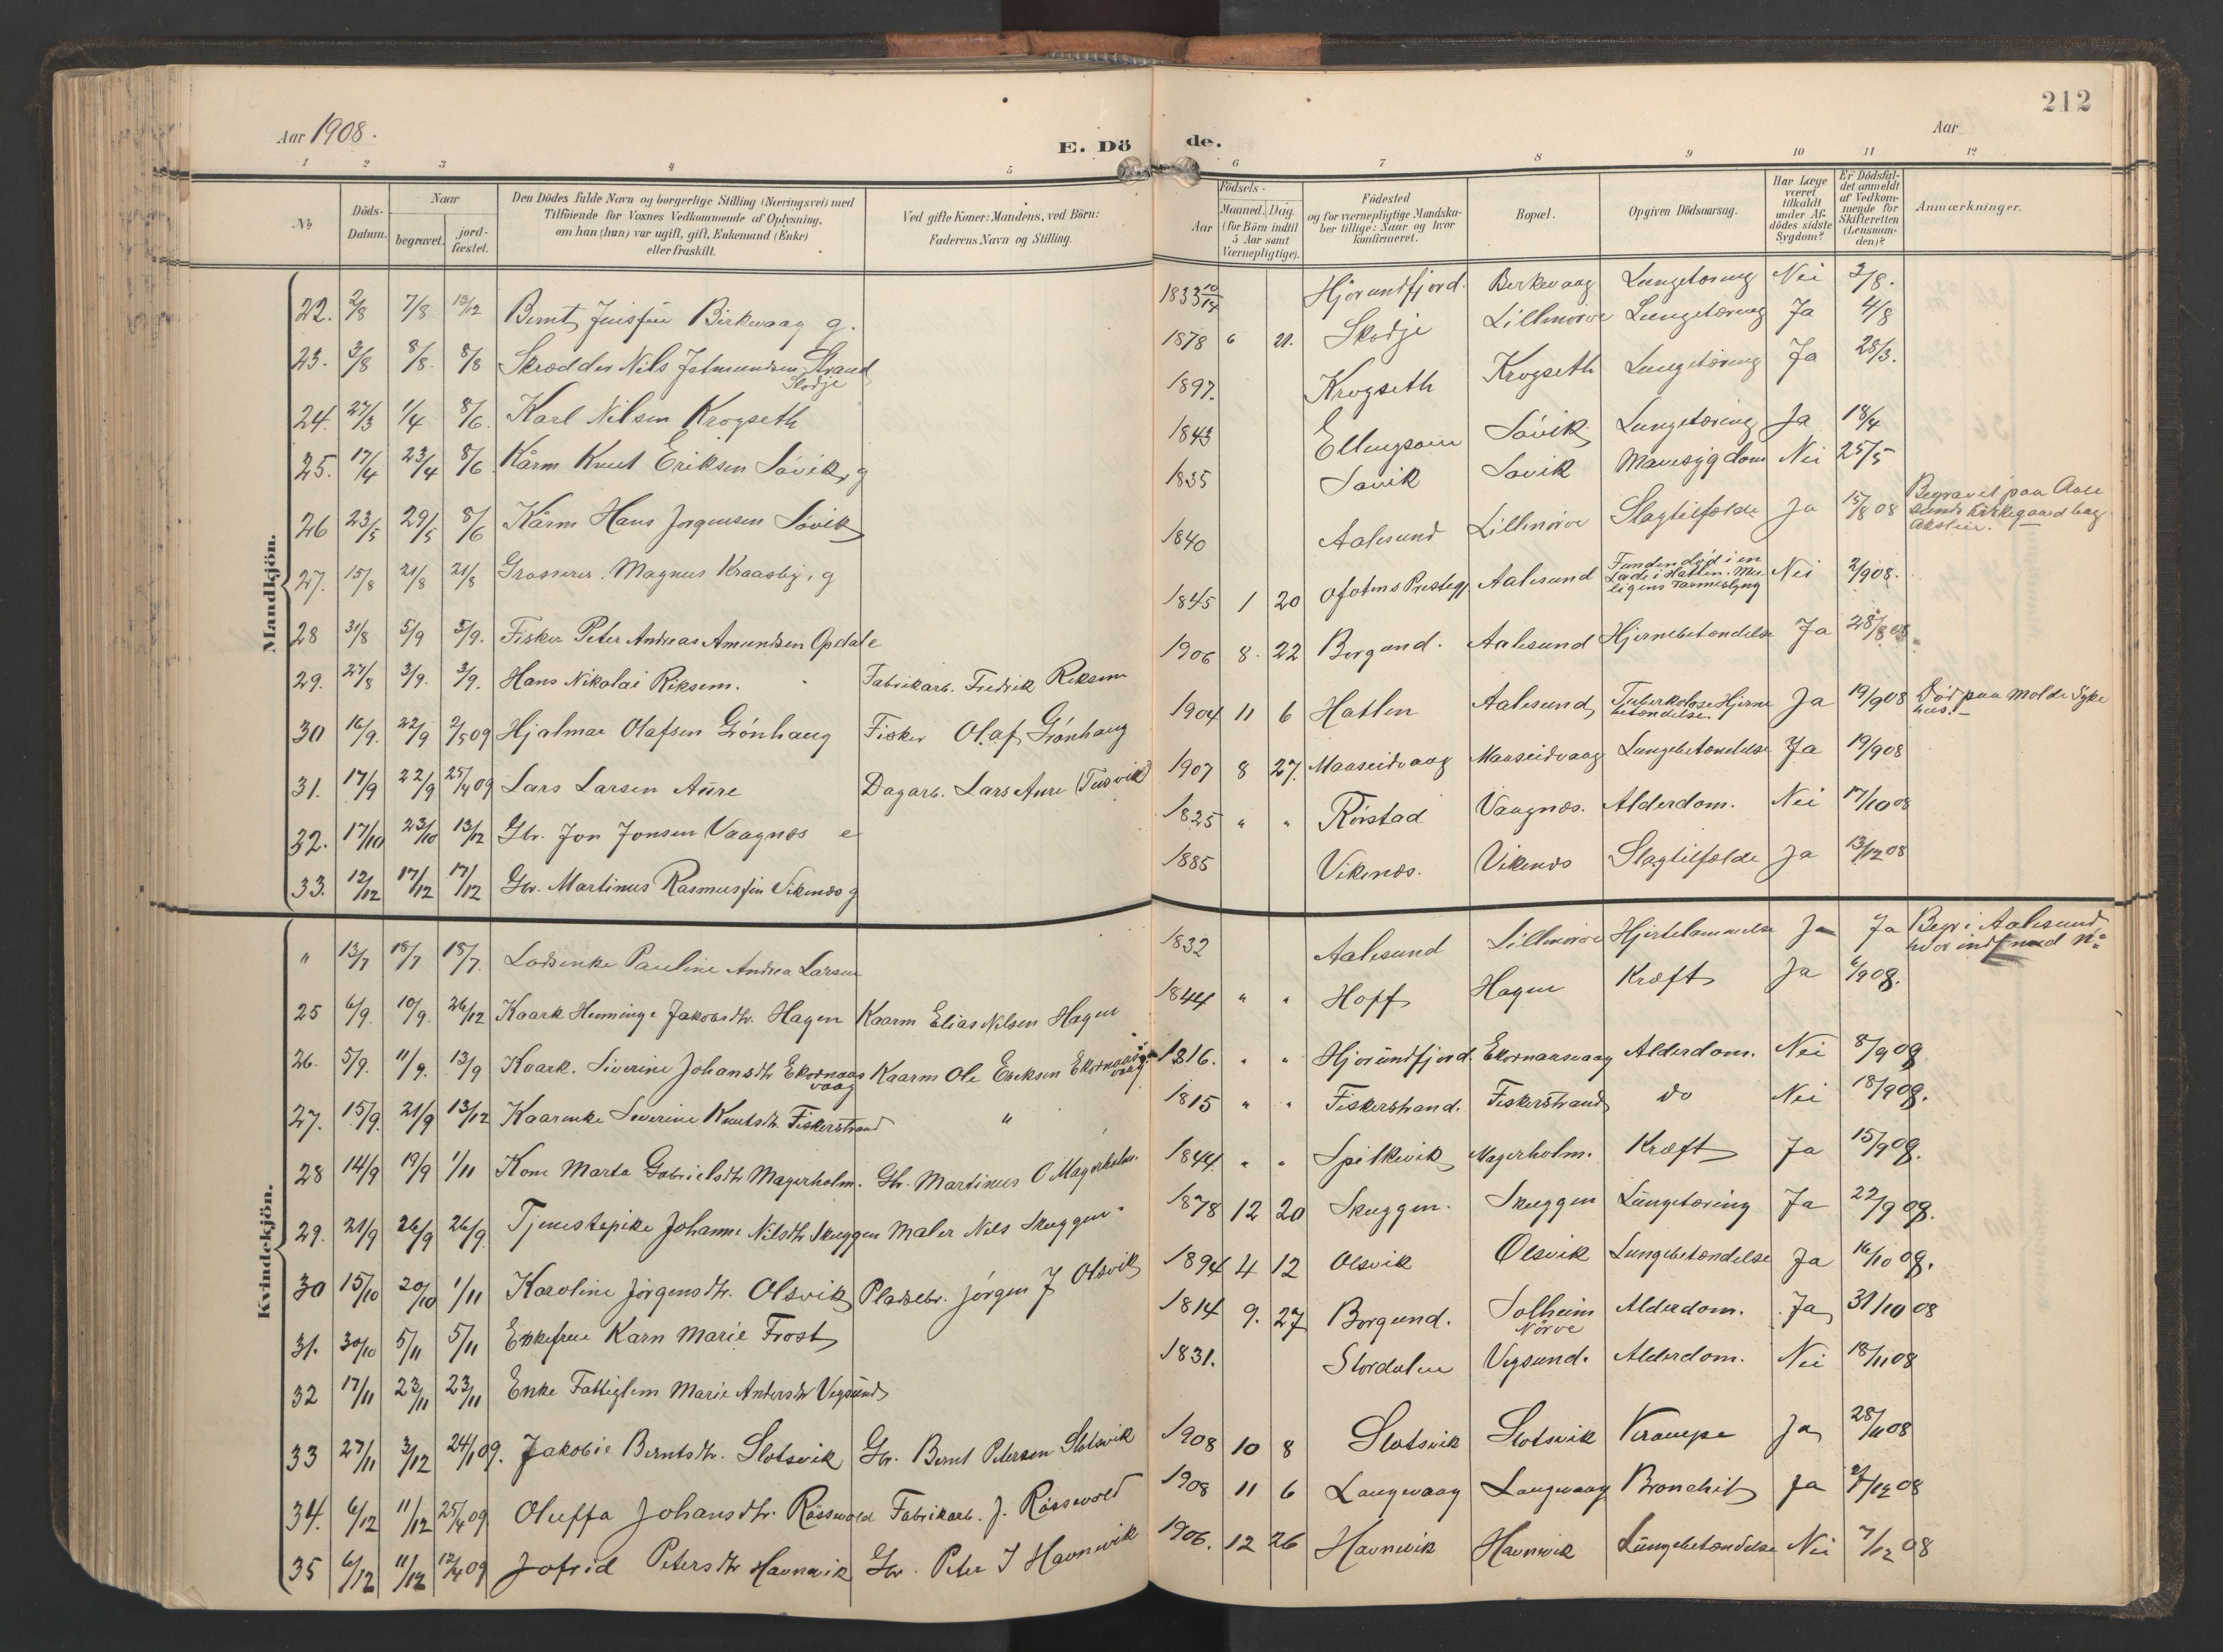 212
Aar 1908.
E. Dö de.
Aar
1 2 3 4 5 6 7 8 9 10 11 12
No
Döds-Datum.
Naar
begravet.
jord-fæstet.
Den Dödes fulde Navn og borgerlige Stilling (Næringsvei) med
Tilföiende for Voxnes Vedkommende af Oplysning,
om han (hun) var ugift, gift, Enkemand (Enke)
eller fraskilt.
Ved gifte Koner: Mandens, ved Börn:
Faderens Navn og Stilling.
Födsels-
Aar
Maaned. Dag.
(for Börn indtil
5 Aar samt
Værnepligtige).
Födested
og for værnepligtige Mandska-
ber tillige: Naar og hvor
konfirmeret.
Bopæl.
Opgiven Dödsaarsag.
Har Læge
været
tilkaldt
under Af-
dödes sidste
Sygdom?
Er Dödsfal-
det anmeldt
af Vedkom-
mende for
Skifteretten
(Lensman-
den)?
Anmærkninger.
Mandkjön.
22. 2/8 7/8 13/12 Bernt Birkevaag g. 1833 Hjørundfjord. Berkevaag Lungetæring Nei 3/8.
23. 3/8 8/8. 8/8 Skrædder Nils Strand Skodje 1878 6 21. Skodje Lillenørve Lungetæring Ja 4/8
24. 27/3 1/4 8/6. Karl Nilsen Krogseth 1897. Krogseth Krogseth Lungetæring Ja 28/3.
25. 17/4 23/4 8/6 Kårm Knut Eriksen Søvik, g 1843 Søvik Lungetæring Ja 18/4
26 23/5 29/5 8/6 Kårm Hans Jørgensen Søvik 1835 Søvik Søvik Mavesygdom Nei 25/5
27. 15/8 21/8 21/8 Grosserer. Magnus Kraasby, g 1840 Aalesund Lillenørve Slagtilfælde Ja 15/8 08 Begravet paa Aale
sunds Kirkegaard bag
Aksleie.
28 31/8 5/9 5/9. Fisker Peter Andreas Amundsen Opdal e 1845 1 20 Ofotens Prestegj Aalesund Funden død i en
Nei 2/908.
29. 27/8 3/9. 3/9. Hans Nikolai Riksem. Fabrikarb. Fredrik Reksem 1906 8. 22 Borgund. Aalesund Hjernebetændelse Ja 28/8 08
30 16/9. 22/9 2/509 Hjalmar Olafsen Grønhaug Fisker Olaf Grønhaug 1904 11 6 Hatlen Aalesund Tuberkoløse Hjerne
betændelse. Ja 19/908 Død paa Molde Syke
hus.
31. 17/9 22/9 25/409 Lars Larsen Aure Dagarb. Lars Aure (Tusvik) 1907 8 27. Maaseidvaag Maaseidvaag Lungebetændelse Ja 19/908
32. 17/10 23/10 13/12 Gbr. Jon Jonsen Vaagnæs e 1825 " " Rørstad Vaagnæs. Alderdom. Nei 17/1008
33. 12/12 17/12 17/12 Gbr. Martinus Rasmussen Vikenæs g 1885 Vikenæs. Vikenæs Slagtilfælde Ja 13/1208
Kvindekjön.
" 13/7 18/7 18/7. Lodsenke Pauline Andrea Larsen 1832 Aalesund Lillenørve Hjertelammelse Ja Ja Begr i Aalesund
25 6/9. 10/9. 26/12 Kaark Henninge Jakobsdtr. Hagen Kaarm Elias Nilsen Hagen 1844 " " Hoff Hagen Kræft Ja 6/908.
26. 5/9. 11/9. 13/9 Kaark. Siverine Johansdtr Ekornaas
vaag Kaarm Ole Ereksen Ekornaas
vaag 1816. " " Hjørundfjord. Ekornaasvaag Alderdom. Nei 8/908
27. 15/9. 21/9 13/12 Kaarenke Severine Knutsdtr. Fiskerstrand " 1815 " " Fiskerstrand. Fiskerstrand do Nei 18/908.
28 14/9 19/9 1/11 Kone Marta Gabrielsdtr Magerholm. Gbr. Martinus O Magerholm. 1844 " " Spilkevik Magerholm. Kræft Ja 15/908.
29. 21/9 26/9 26/9. Tjenestepike Johanne Nilsdtr Skuggen Maler Nils Skuggen. 1878 12 20 Skuggen. Skuggen Lungetæring Ja 22/908.
30 15/10 20/10 1/11 Karoline Jørgensdtr. Olsvik Pladsebr. Jørgen J Olsvik 1894 4 12 Olsvik Olsvik Lungebetændelse Ja 16/10 08.
31. 30/10 5/11 5/11 Enkefrue Karn Marie Frost 1814 9. 27 Borgund. Solheim
Nørve Alderdom. Ja 31/10 08
32 17/11 23/11 23/11 Enke Fattiglem Marie Andersdtr Vegsund 1831. Stordalen Vegsund. Alderdom. Nei 18/1108
33 27/11 3/12 24/109. Jakobie Berntsdtr. Slotsvik Gbr. Bernt Petersen Slotsvik 1908 10 8 Slotsvik Slotsvik Krampe Ja 28/1108
34. 6/12 11/12 25/409 Oluffa Johansdtr. Røssevold Fabrikarb. J. Røssevold 1908 11 6 Langevaag Langevaag Bronchit Ja /1208
35 6/12 11/12 12/409 Jofrid Petersdtr Havnevik Gbr. Peter I Havnevik 1906. 12 26 Havnevik Havnevik Lungebetændelse Nei 7/12 08